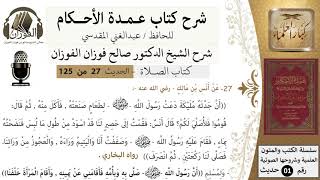 شرح كتاب عمدة الأحكام
للحافظ / عبدالغني المقدسي
شرح الشيخ الدكتور صالح فوزان الفوزان
كتاب الصلاة - الحديث 27 من 125
27- عَنْ أَنَسِ بْنِ مَالِكٍ - رضي الله عنه -:
(أَنَّ جَدَّتَهُ مُلَيْكَةَ دَعَتْ رَسُولَ اللَّهِ ﷺ لِطَعَامٍ صَنَعَتْهُ ، فَأَكَلَ مِنْهُ ، ثُمَّ قَالَ:
قُومُوا فَلِأُصَلِّيَ لَكُمْ؟ قَالَ أَنَسٌ: فَقُمْتُ إِلَى حَصِيرٍ لَنَا قَدِ اسْوَدَّ مِنْ طُولِ مَا لُبِسَ فَنَضَحْتُهُ
بِمَاءٍ، فَقَامَ عَلَيْهِ رَسُولُ اللَّهِ ﷺ وَصَفَفْتُ أَنَا وَالْيَتِيمُ وَرَاءَهُ ، وَالْعَجُوزُ مِنْ وَرَائِنَا.
فَصَلَّى لَنَا رَكْعَتَيْنِ ، ثُمَّ انْصَرَفَ)) رواه البخاري
وَلِمُسْلِمٍ ((أَنَّ رَسُولَ اللَّهِ ﷺ صَلَّى بِهِ وَبِأُمِّهِ فَأَقَامَنِي عَنْ يَمِينِهِ ، وَأَقَامَ الْمَرْأَةَ خَلْفَنَا))
الفوزان
سلسلة الكتب والمتون
العلمية وشروحها الصوتية
رقم 01 حديث